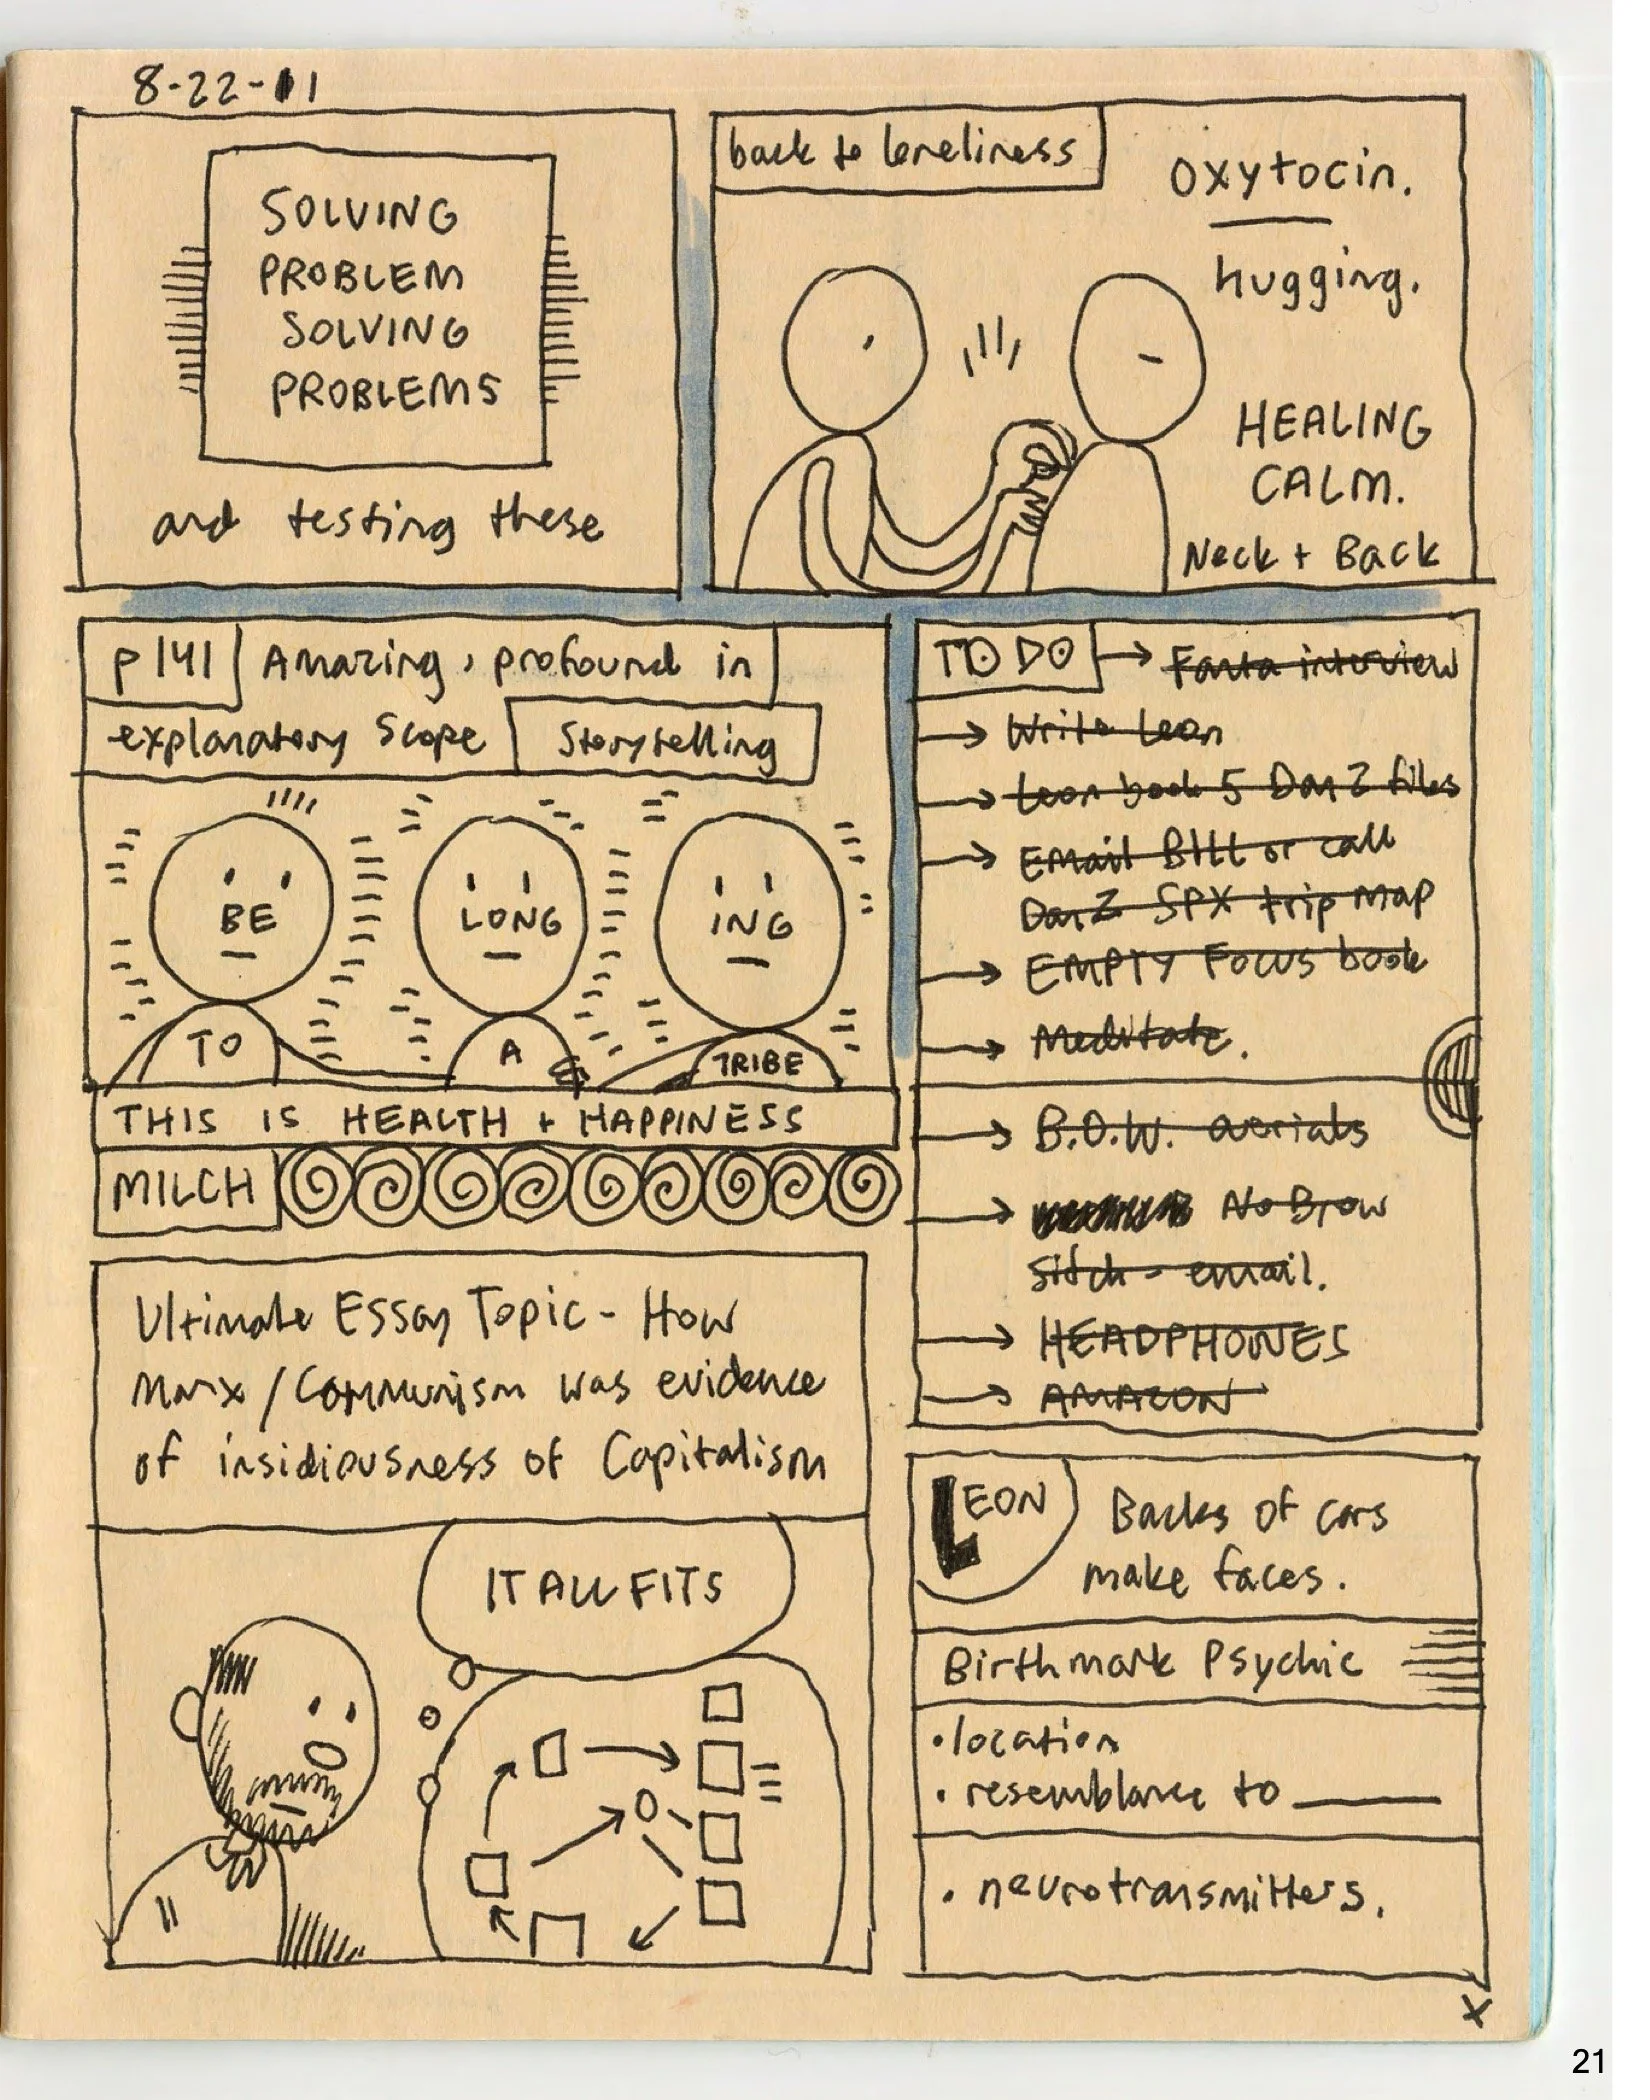 8-22-11
SOLVING
PROBLEM
SOLVING
PROBLEMS
and testing these
back to loneliness
oxytocin.
hugging.
HEALING
CALM.
Neck + Back
p 141 Amazing, profound in
explanatory scope Storytelling
BE LONG ING
TO A TRIBE
THIS IS HEALTH + HAPPINESS
MILCH
TO DO → Fanta interview
→ Write Leon
→ Leon book 5 Dan Z files
→ Email BILL or call
Dan Z SPX trip map
→ EMPTY FOCUS book
→ Meditate.
→ B.O.W. aerials
→ No Brow
sitch - email.
→ HEADPHONES
→ AMAZON
Ultimate Essay Topic - How
Marx / Communism was evidence
of insidiousness of Capitalism
IT ALL FITS
LEON Backs of cars
make faces.
Birthmark Psychic
• location
• resemblance to ____
• neurotransmitters.
x
21